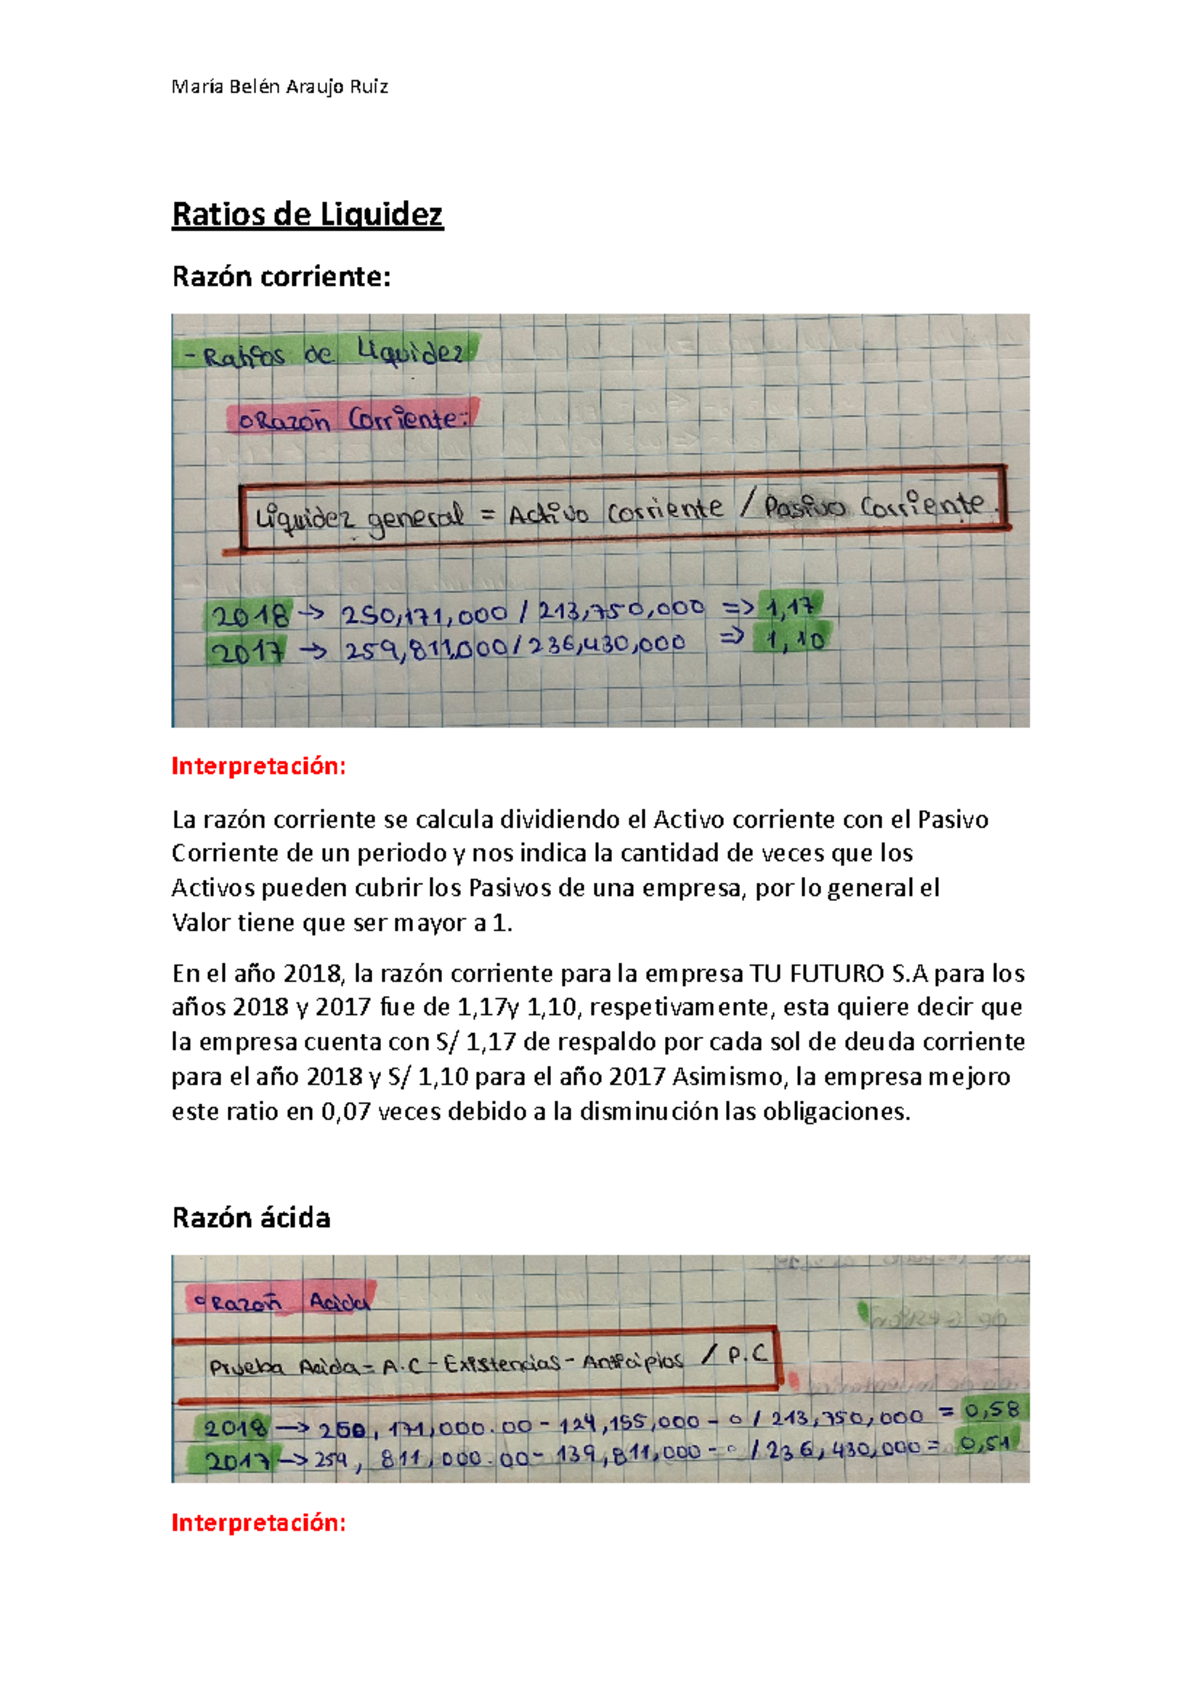 María Belén Araujo Ruiz
Ratios de Liquidez
Razón corriente:
- Ratios de Liquidez
Razón Corriente:
Liquidez general = Activo corriente / Pasivo Corriente.
2018 → 250,171,000 / 213,750,000 => 1,17
2017 → 259,811,000 / 236,430,000 => 1,10
Interpretación:
La razón corriente se calcula dividiendo el Activo corriente con el Pasivo
Corriente de un periodo y nos indica la cantidad de veces que los
Activos pueden cubrir los Pasivos de una empresa, por lo general el
Valor tiene que ser mayor a 1.
En el año 2018, la razón corriente para la empresa TU FUTURO S.A para los
años 2018 y 2017 fue de 1,17y 1,10, respetivamente, esta quiere decir que
la empresa cuenta con S/ 1,17 de respaldo por cada sol de deuda corriente
para el año 2018 y S/ 1,10 para el año 2017 Asimismo, la empresa mejoro
este ratio en 0,07 veces debido a la disminución las obligaciones.
Razón ácida
Razón Acida
Prueba Acida = A.C - Existencias - Anticipios / P.C
2018 → 250, 171,000.00 - 124,155,000 - 0 / 213,750,000 = 0,58
2017 → 259, 811,000.00 - 139,811,000 - 0 / 236,430,000 = 0,51
Interpretación: